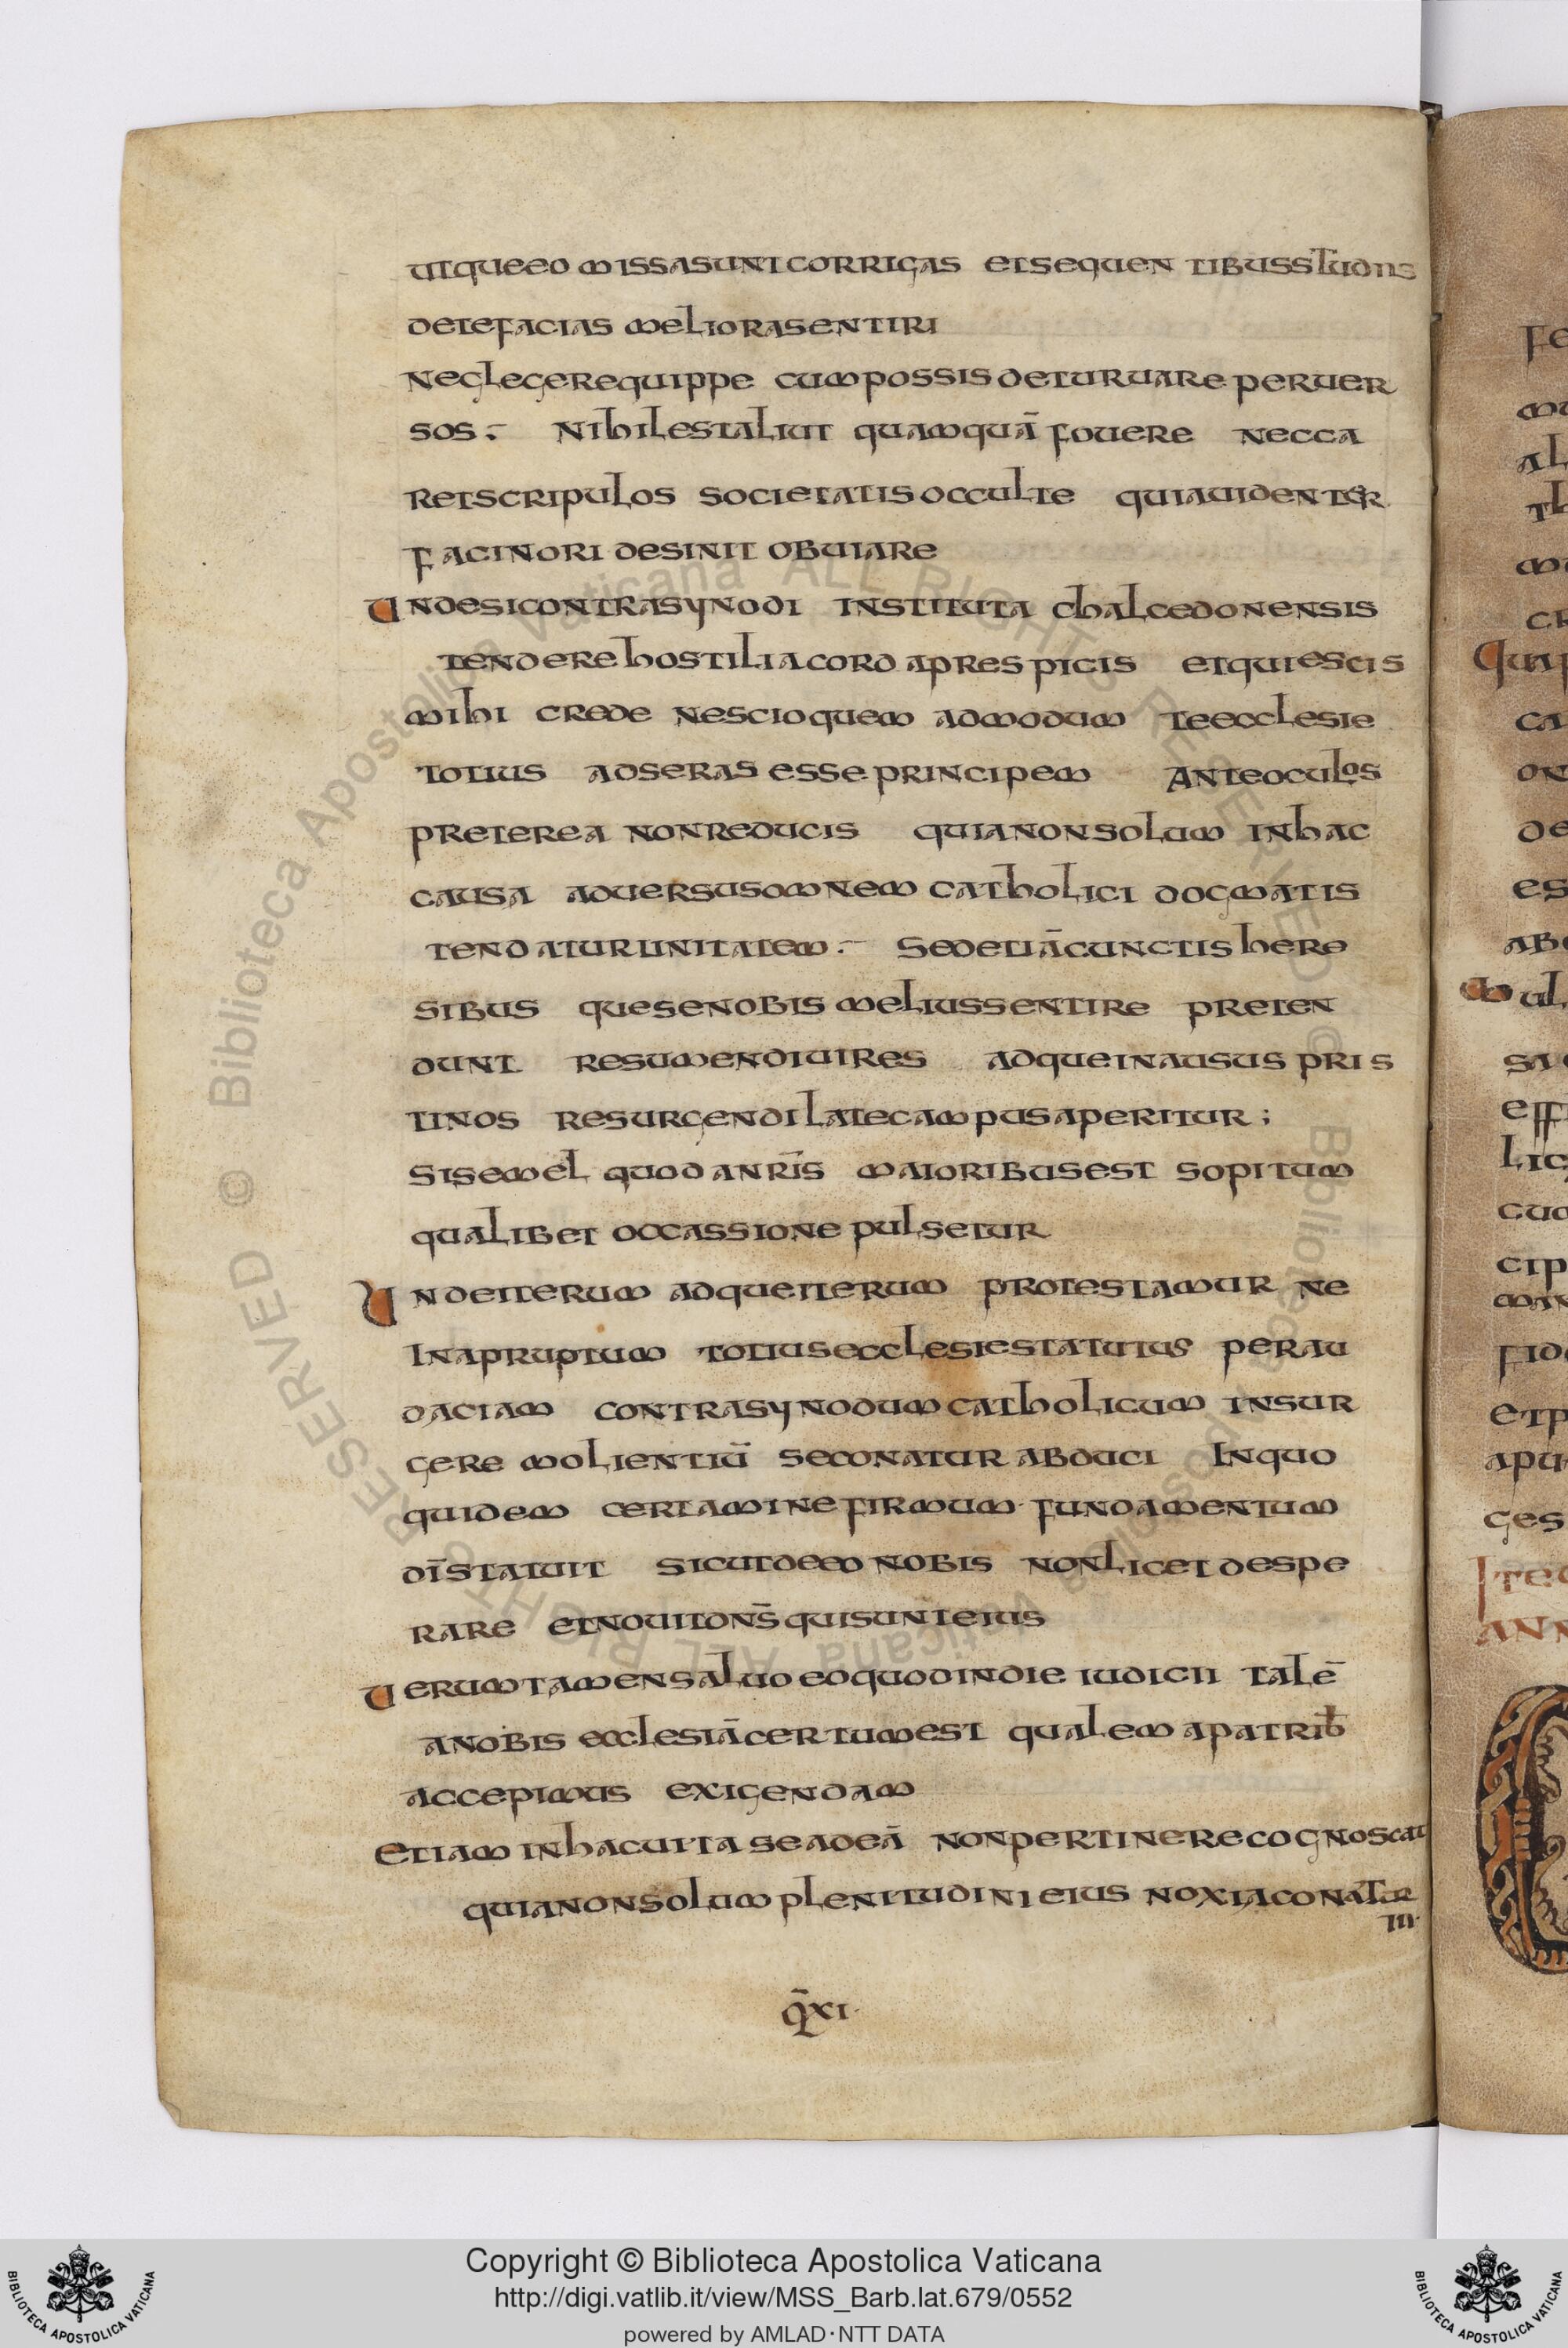 utque eo missa sunt corrigas et sequentibus studiis
dete facias meliora sentiri
Neglegere quippe cum possis deturuare peruer
sos. Nihil est aliut quam quā fouere nec ca
ret scripulos societatis occulte qui auidenter
facinori desinit obuiare
Unde si contra synodi instituta chalcedonensis
tendere hostilia corda prespicis et quiescis
mihi crede nescio quem admodum te ecclesie
totius adseras esse principem Ante oculos
preterea non reducis quia non solum in hac
causa aduersus omnem catholici dogmatis
tendatur unitatem. Sed etiā cunctis here
sibus que se nobis melius sentire preten
dunt resumendi uires adque in ausus pris
tinos resurgendi late campus aperitur;
si semel quod a nrīs maioribus est sopitum
qualibet occassione pulsetur
Unde iterum adque iterum protestamur ne
in apruptum totius ecclesie statutus per au
daciam contra synodum catholicum insur
gere molientiū se conatur abduci In quo
quidem certamine firmum fundamentum
dīs tatuit sicut de eo nobis non licet despe
rare et nouit dns̄ qui sunt eius
Uerumtamen saluo eo quod in die iudicii talē
a nobis ecclesiā certum est qualem a patrib̄
accepimus exigendam
Etiam in hac uita se ad eā non pertinere cognoscat
quia non solum plenitudini eius noxia conatur
m
q̄ xi.
Copyright © Biblioteca Apostolica Vaticana
http://digi.vatlib.it/view/MSS_Barb.lat.679/0552
powered by AMLAD·NTT DATA